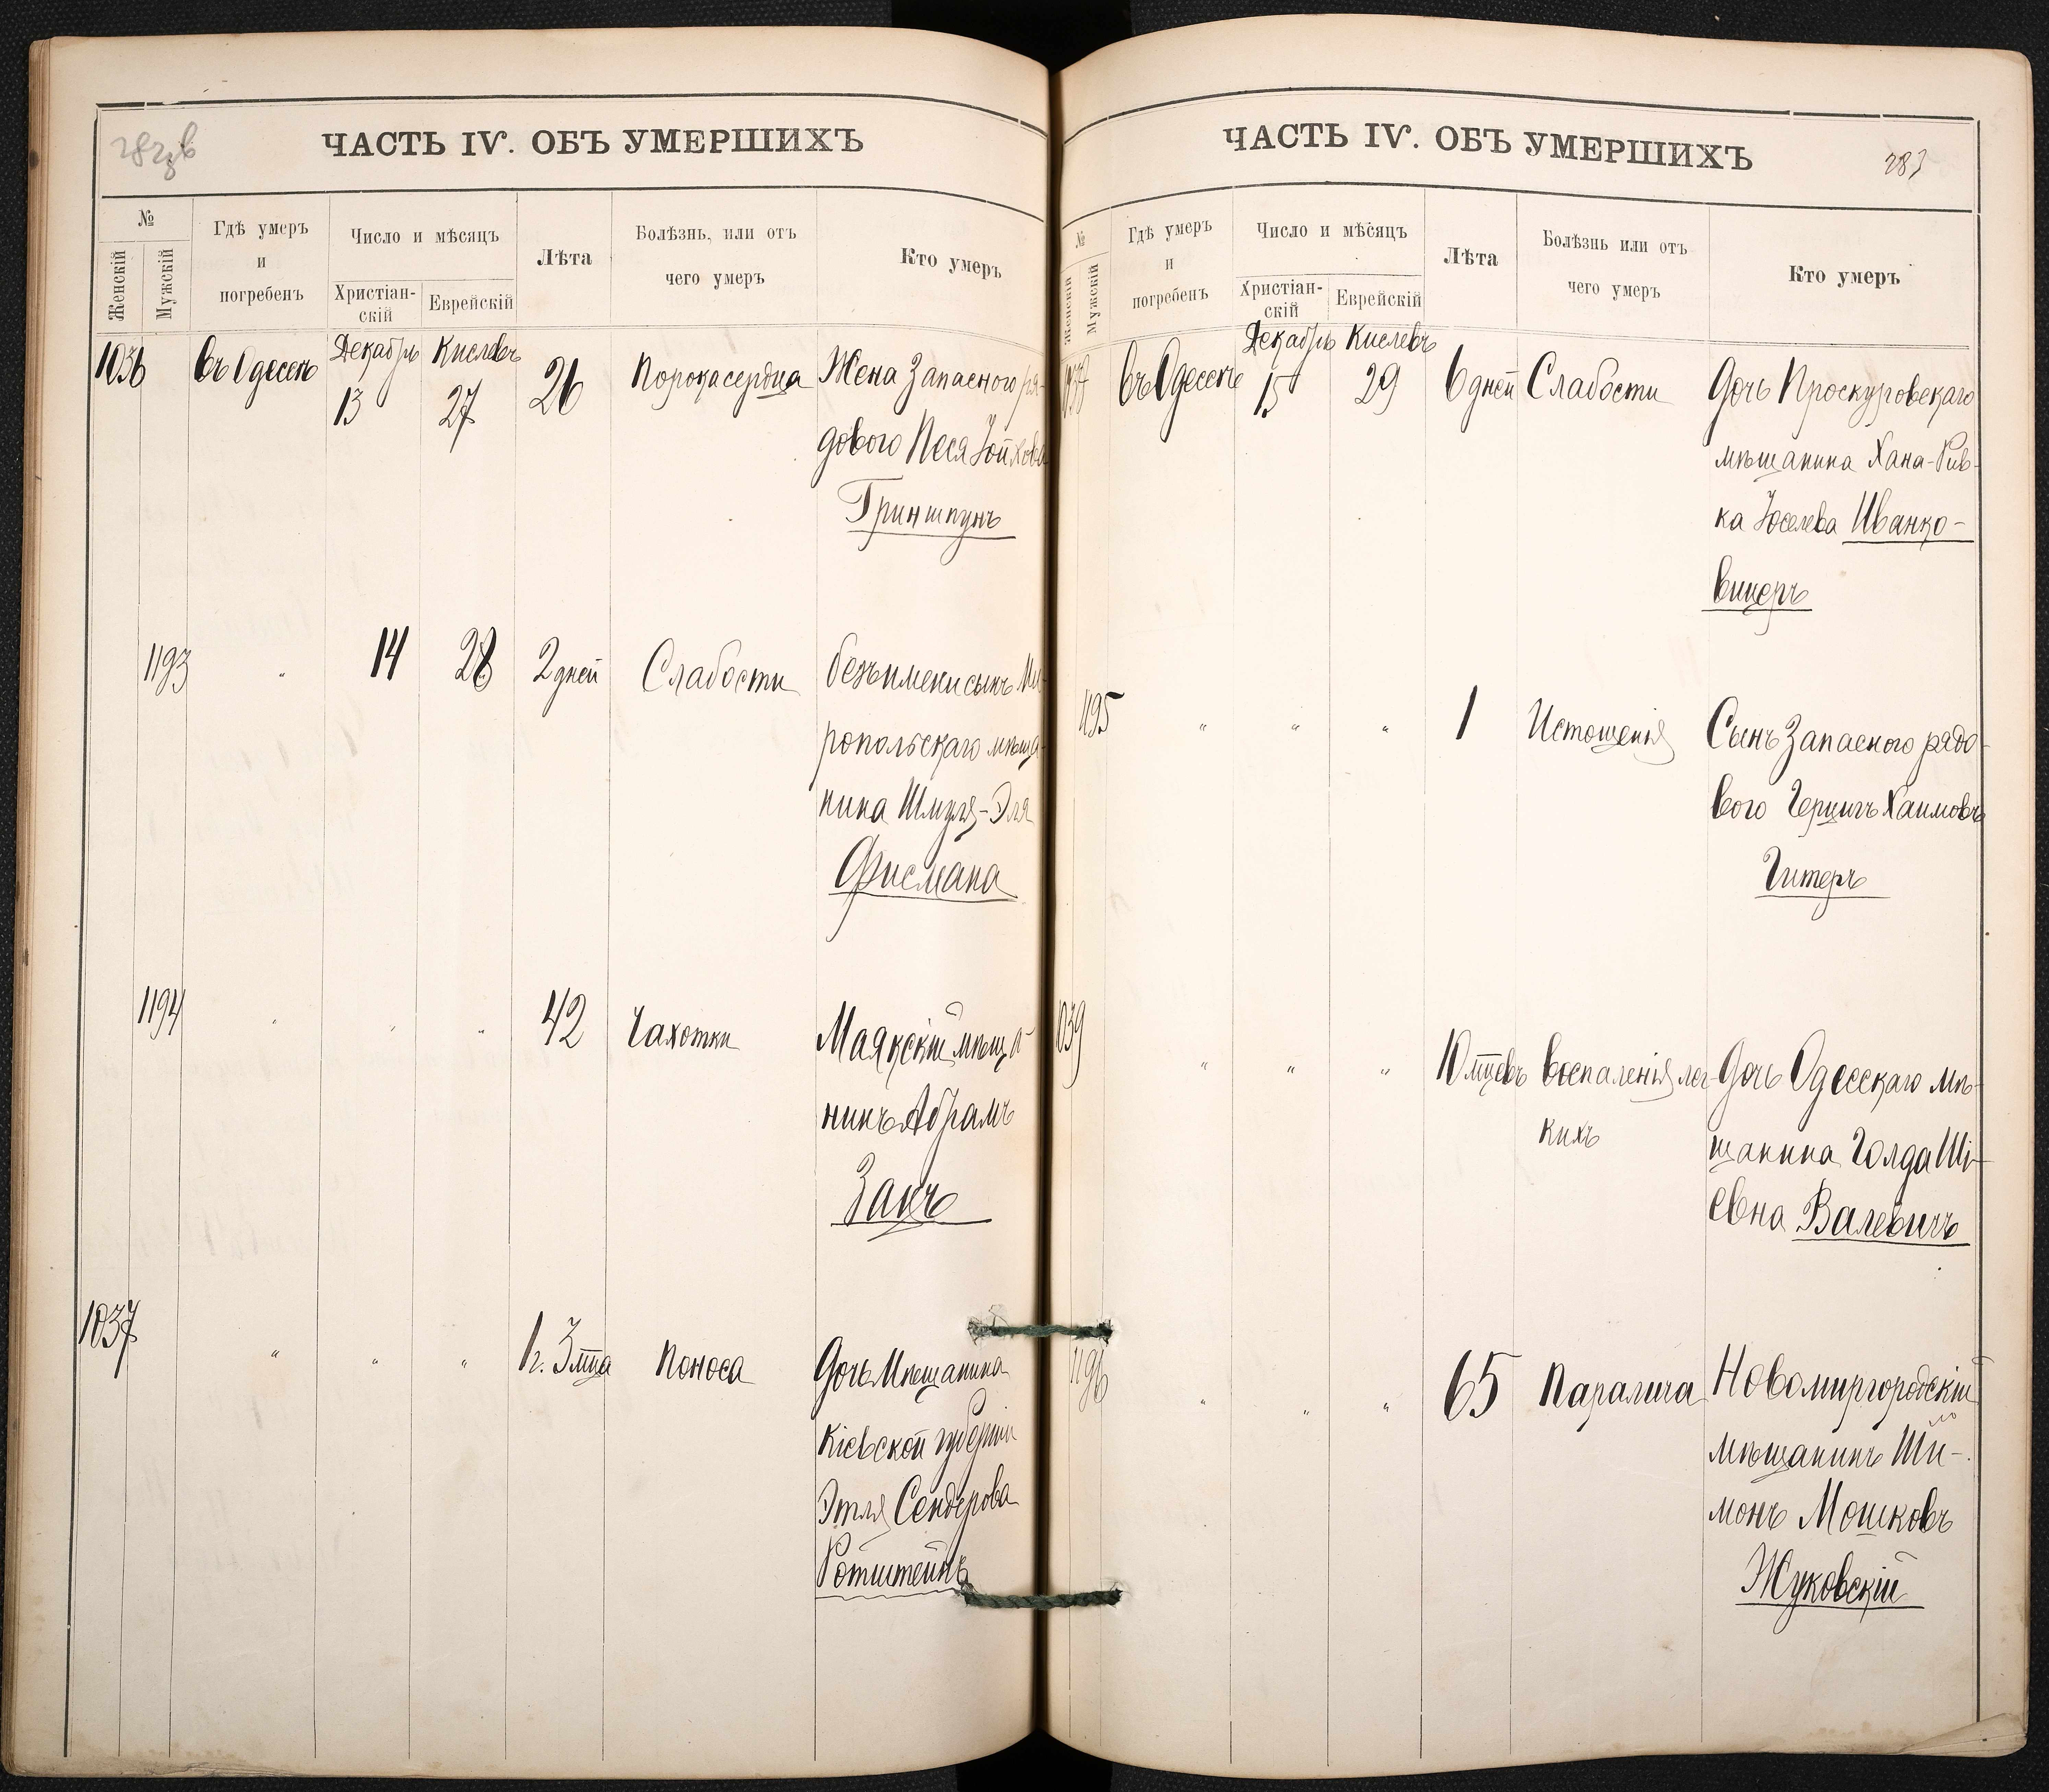 ЧАСТЬ IV. ОБЪ УМЕРШИХЪ
№
Женскій
Мужскій
Гдѣ умеръ
и
погребенъ
Число и мѣсяцъ
Христіан-
скій
Еврейскій
Лѣта
Болѣзнь, или отъ
чего умеръ
Кто умеръ
1036
въ Одессѣ
Декабрь
13
Кислевъ
27
26
Порока сердца
Жена Запасного ря-
дового Песя Йойхова
Гриншпунъ
1193
"
14
28
2 дней
Слабости
безъ имени сынъ Ми-
ропольскаго мѣща-
нина Шмуля-Эля
Фисмана
1194
"
"
"
42
Чахотки
Маякскій мѣща-
нинъ Абрамъ
Закъ
1037
"
"
"
1 г. 3 мца
Поноса
Дочь Мѣщанина
Кіевской губерніи
Этля Сендерова
Ротштейнъ
ЧАСТЬ IV. ОБЪ УМЕРШИХЪ
283
№
Женскій
Мужскій
Гдѣ умеръ
и
погребенъ
Число и мѣсяцъ
Христіан-
скій
Еврейскій
Лѣта
Болѣзнь или отъ
чего умеръ
Кто умеръ
въ Одессѣ
Декабрь
15
Кислевъ
29
6 дней
Слабости
Дочь Проскуровскаго
мѣщанина Хана-Рив-
ка Іоселева Иванко-
вицеръ
1195
"
"
"
1
Истощенія
Сынъ Запасного рядо-
вого Герцигъ Хаимовъ
Гитеръ
1039
"
"
"
10 мцевъ
воспаленія лег-
кихъ
Дочь Одесскаго мѣ-
щанина Голда Ші-
евна Валевичъ
1196
"
"
"
65
Паралича
Новомиргородскій
мѣщанинъ Ши-
монъ Мошковъ
Жуковскій